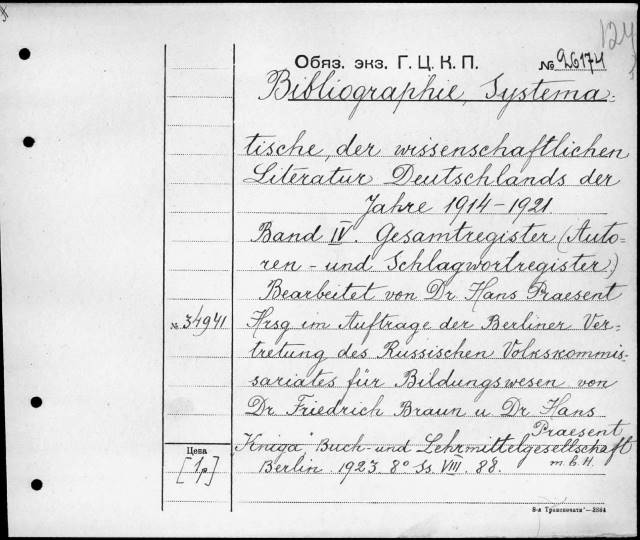 124
Обяз. экз. Г. Ц. К. П. № 26174
Bibliographie, Systema-
tische, der wissenschaftlichen
Literatur Deutschlands der
Jahre 1914-1921.
Band IV. Gesamtregister (Auto-
ren- und Schlagwortregister.)
Bearbeitet von Dr Hans Praesent
№ 3/4941 Hrsg im Auftrage der Berliner Ver-
tretung des Russischen Volkskommis-
sariates für Bildungswesen von
Dr Friedrich Braun u Dr Hans
Praesent
"Kniga", Buch- und Lehrmittelgesellschaft
m.b.H.
Цена
[1р] Berlin. 1923. 8° Ss VIII. 88.
8-я Транспечати"—2264